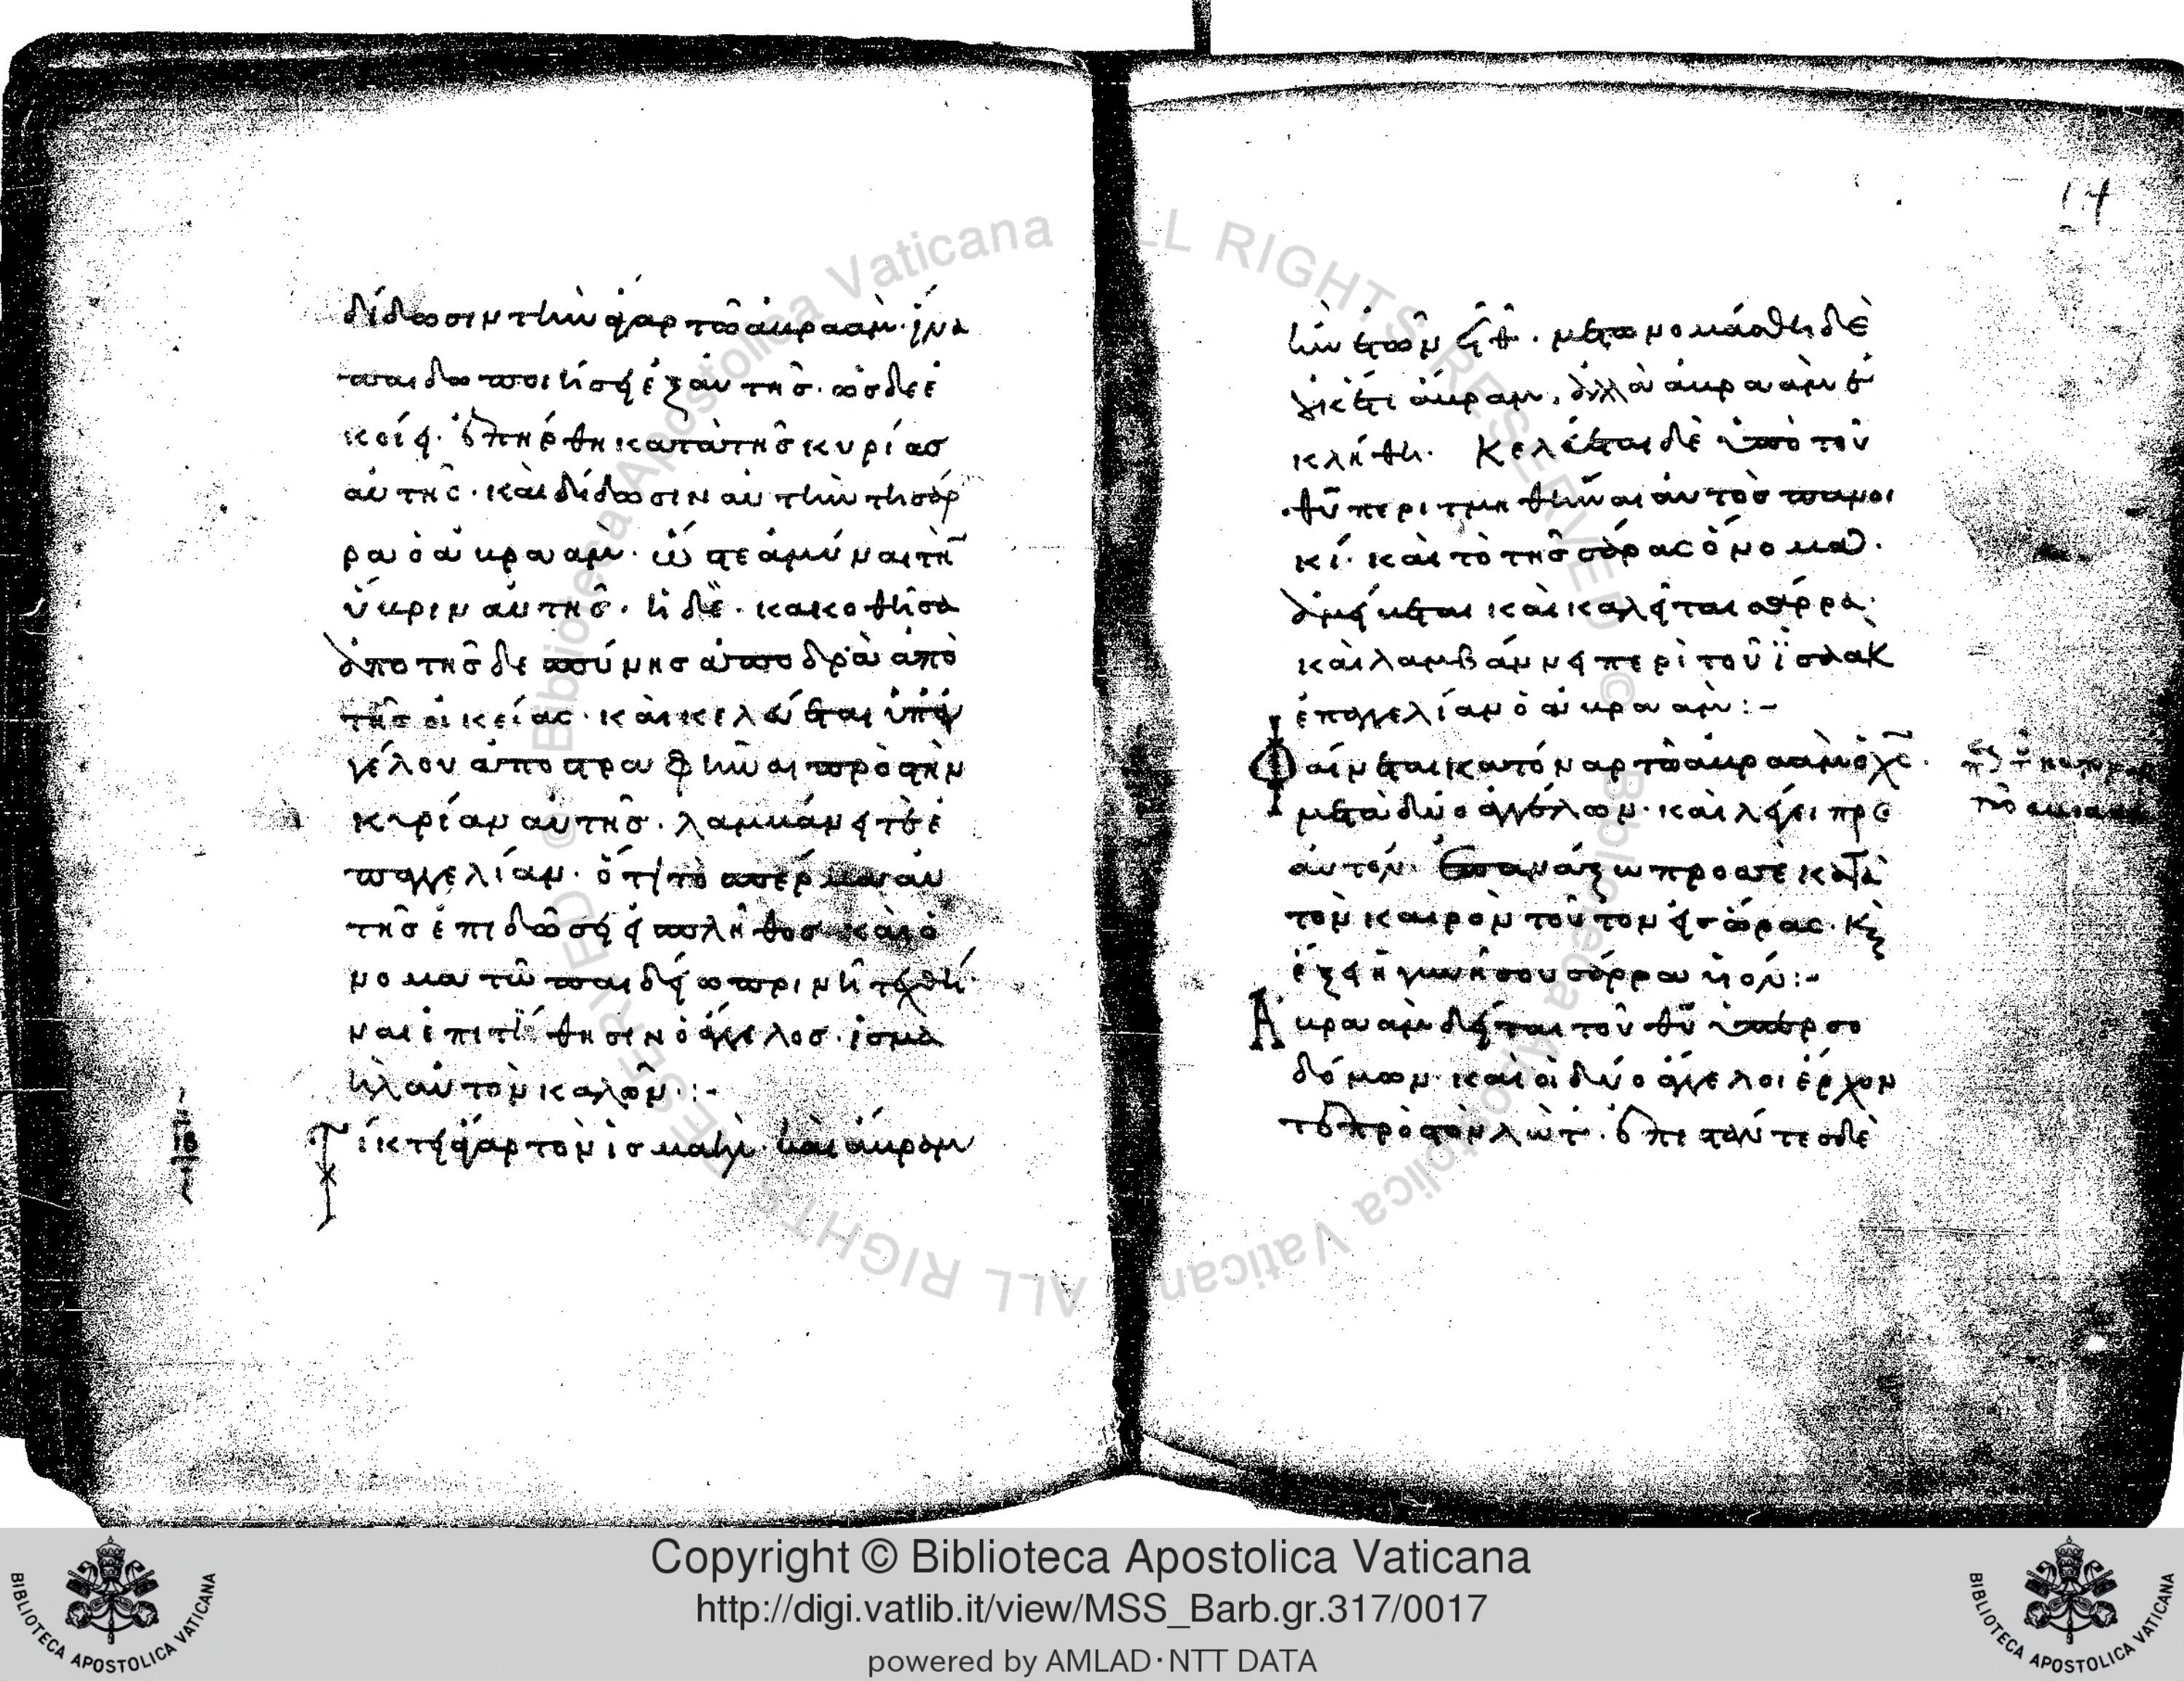 δίδωσιν τὴν ἄγαρ τῶ ἀβραὰμ· ἵνα
παιδοποιήσει ἐξ αὐτῆς· ὡς δὲ ἐ
κοίει· ἐπήρθη κατὰ τῆς κυρίας
αὐτῆς· καὶ δίδωσιν αὐτὴν τὴ σάρ
ρα ὁ ἀβραὰμ· ὥστε ἀμύναι τὴν
ὕβριν αὐτῆς· ἡ δὲ κακοθῆσα
ἀπὸ τῆς δεσποίνης ἀποδρᾶ ἀπὸ
τῆς οἰκείας· καὶ κελεύεται ὑπ' ἀγ
γέλου ἀποστραφῆναι πρὸς τὴν
κυρίαν αὐτῆς· λαμβάνει τὲ ἐ
παγγελίαν· ὅτι τὸ σπέρμα αὐ
τῆς ἐπιδώσει εἰς πλῆθος καὶ ὄ
νομα τῶ παιδείω πρινὴ τεχθῆ
ναι ἐπιτίθησιν ὁ ἄγγελος· ἰσμα
ὴλ αὐτὸν καλῶν :-
Τίκτει ἄγαρ τὸν ἰσμαὴλ· καὶ ἀβραμ
14
ἦν ἐτῶν
μετωνομάσθη δὲ
οὐκέτι ἄβραμ, ἀλλὰ ἀβραὰμ ἐ
κλήθη· Κελεύεται δὲ ὑπὸ τοῦ
θυ περιτμηθῆναι αὐτὸς πανοι
κί· καὶ τὸ τῆς σάρας ὄνομα
ἀμείβεται καὶ καλεῖται σάρρα·
καὶ λαμβάνει περὶ τοῦ ϊσαὰκ
ἐπαγγελίαν ὁ ἀβραὰμ :-
Φαίνεται κατ' ὄναρ τῶ ἀβραὰμ ὁ χς·
μετὰ δύο ἀγγέλων· καὶ λέγει πρὸ
αὐτόν· Ἐπανάξω πρὸς σὲ κατὰ
τὸν καιρὸν τοῦτον εἰς ὥρας· κὶ
ἕξει ἡ γυνή σου σάρρα υἱόν :-
Ἀβραὰμ δεῖται τοῦ θυ ὑπὲρ σο
δόμων· καὶ οἱ δύο ἄγγελοι ἔρχον
τε πρὸς τὸν λώτ· ἐπιστάντες δὲ